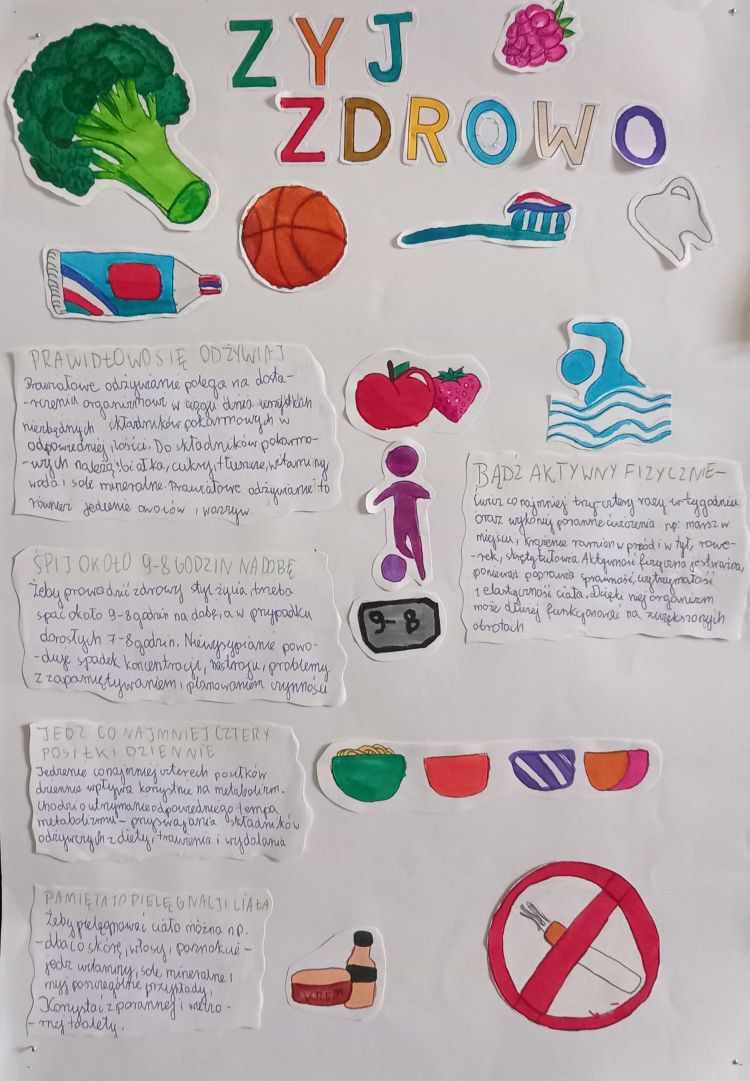 ZYJ
ZDROWO
PRAWIDŁOWO SIĘ ODŻYWIAJ
Prawidłowe odżywianie polega na dosta-
-rczeniu organizmowi w ciągu dnia wszystkich
niezbędnych składników pokarmowych w
odpowiedniej ilości. Do składników pokarmo-
-wych należą: białka, cukry, tłuszcze, witaminy
woda i sole mineralne. Prawidłowe odżywianie to
również jedzenie owoców i warzyw.
BĄDŹ AKTYWNY FIZYCZNIE-
ćwicz co najmniej trzy-cztery razy w tygodniu
oraz wykonuj poranne ćwiczenia np: marsz w
miejscu, krążenie ramion w przód i w tył, rowe-
-rek, skręty tułowia. Aktywność fizyczna jest ważna,
ponieważ poprawia sprawność, wytrzymałość
i elastyczność ciała. Dzięki niej organizm
może dłużej funkcjonować na zwiększonych
obrotach
ŚPIJ OKOŁO 9-8 GODZIN NA DOBĘ
Żeby prowadzić zdrowy styl życia, trzeba
spać około 9-8 godzin na dobę, a w przypadku
dorosłych 7-8 godzin. Niewysypianie powo-
-duje spadek koncentracji, nastroju, problemy
z zapamiętywaniem i planowaniem czynności
9-8
JEDZ CO NAJMNIEJ CZTERY
POSIŁKI DZIENNIE
Jedzenie co najmniej czterech posiłków
dziennie wpływa korzystnie na metabolizm.
Chodzi o utrzymanie odpowiedniego tempa
metabolizmu- przyswajania składników
odżywczych z diety, trawienia i wydalania
PAMIĘTAJ O PIELĘGNACJI CIAŁA
Żeby pielęgnować ciało można np.
-dbać o skórę, włosy, paznokcie-
-jedz witaminy, sole mineralne i
myj poszczególne przykłady,
Korzystać z porannej i wieczo-
-rnej toalety.
KREM